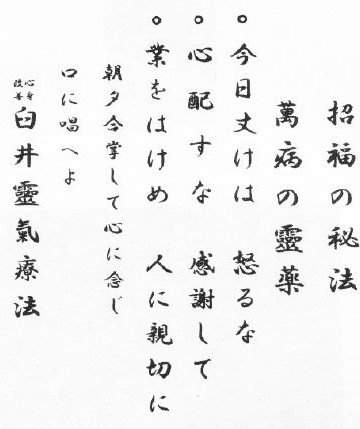 招福の秘法
萬病の靈薬
○今日丈けは 怒るな
○心配すな 感謝して
○業をはけめ 人に親切に
朝夕合掌して心に念じ
口に唱へよ
心身
改善
臼井靈氣療法